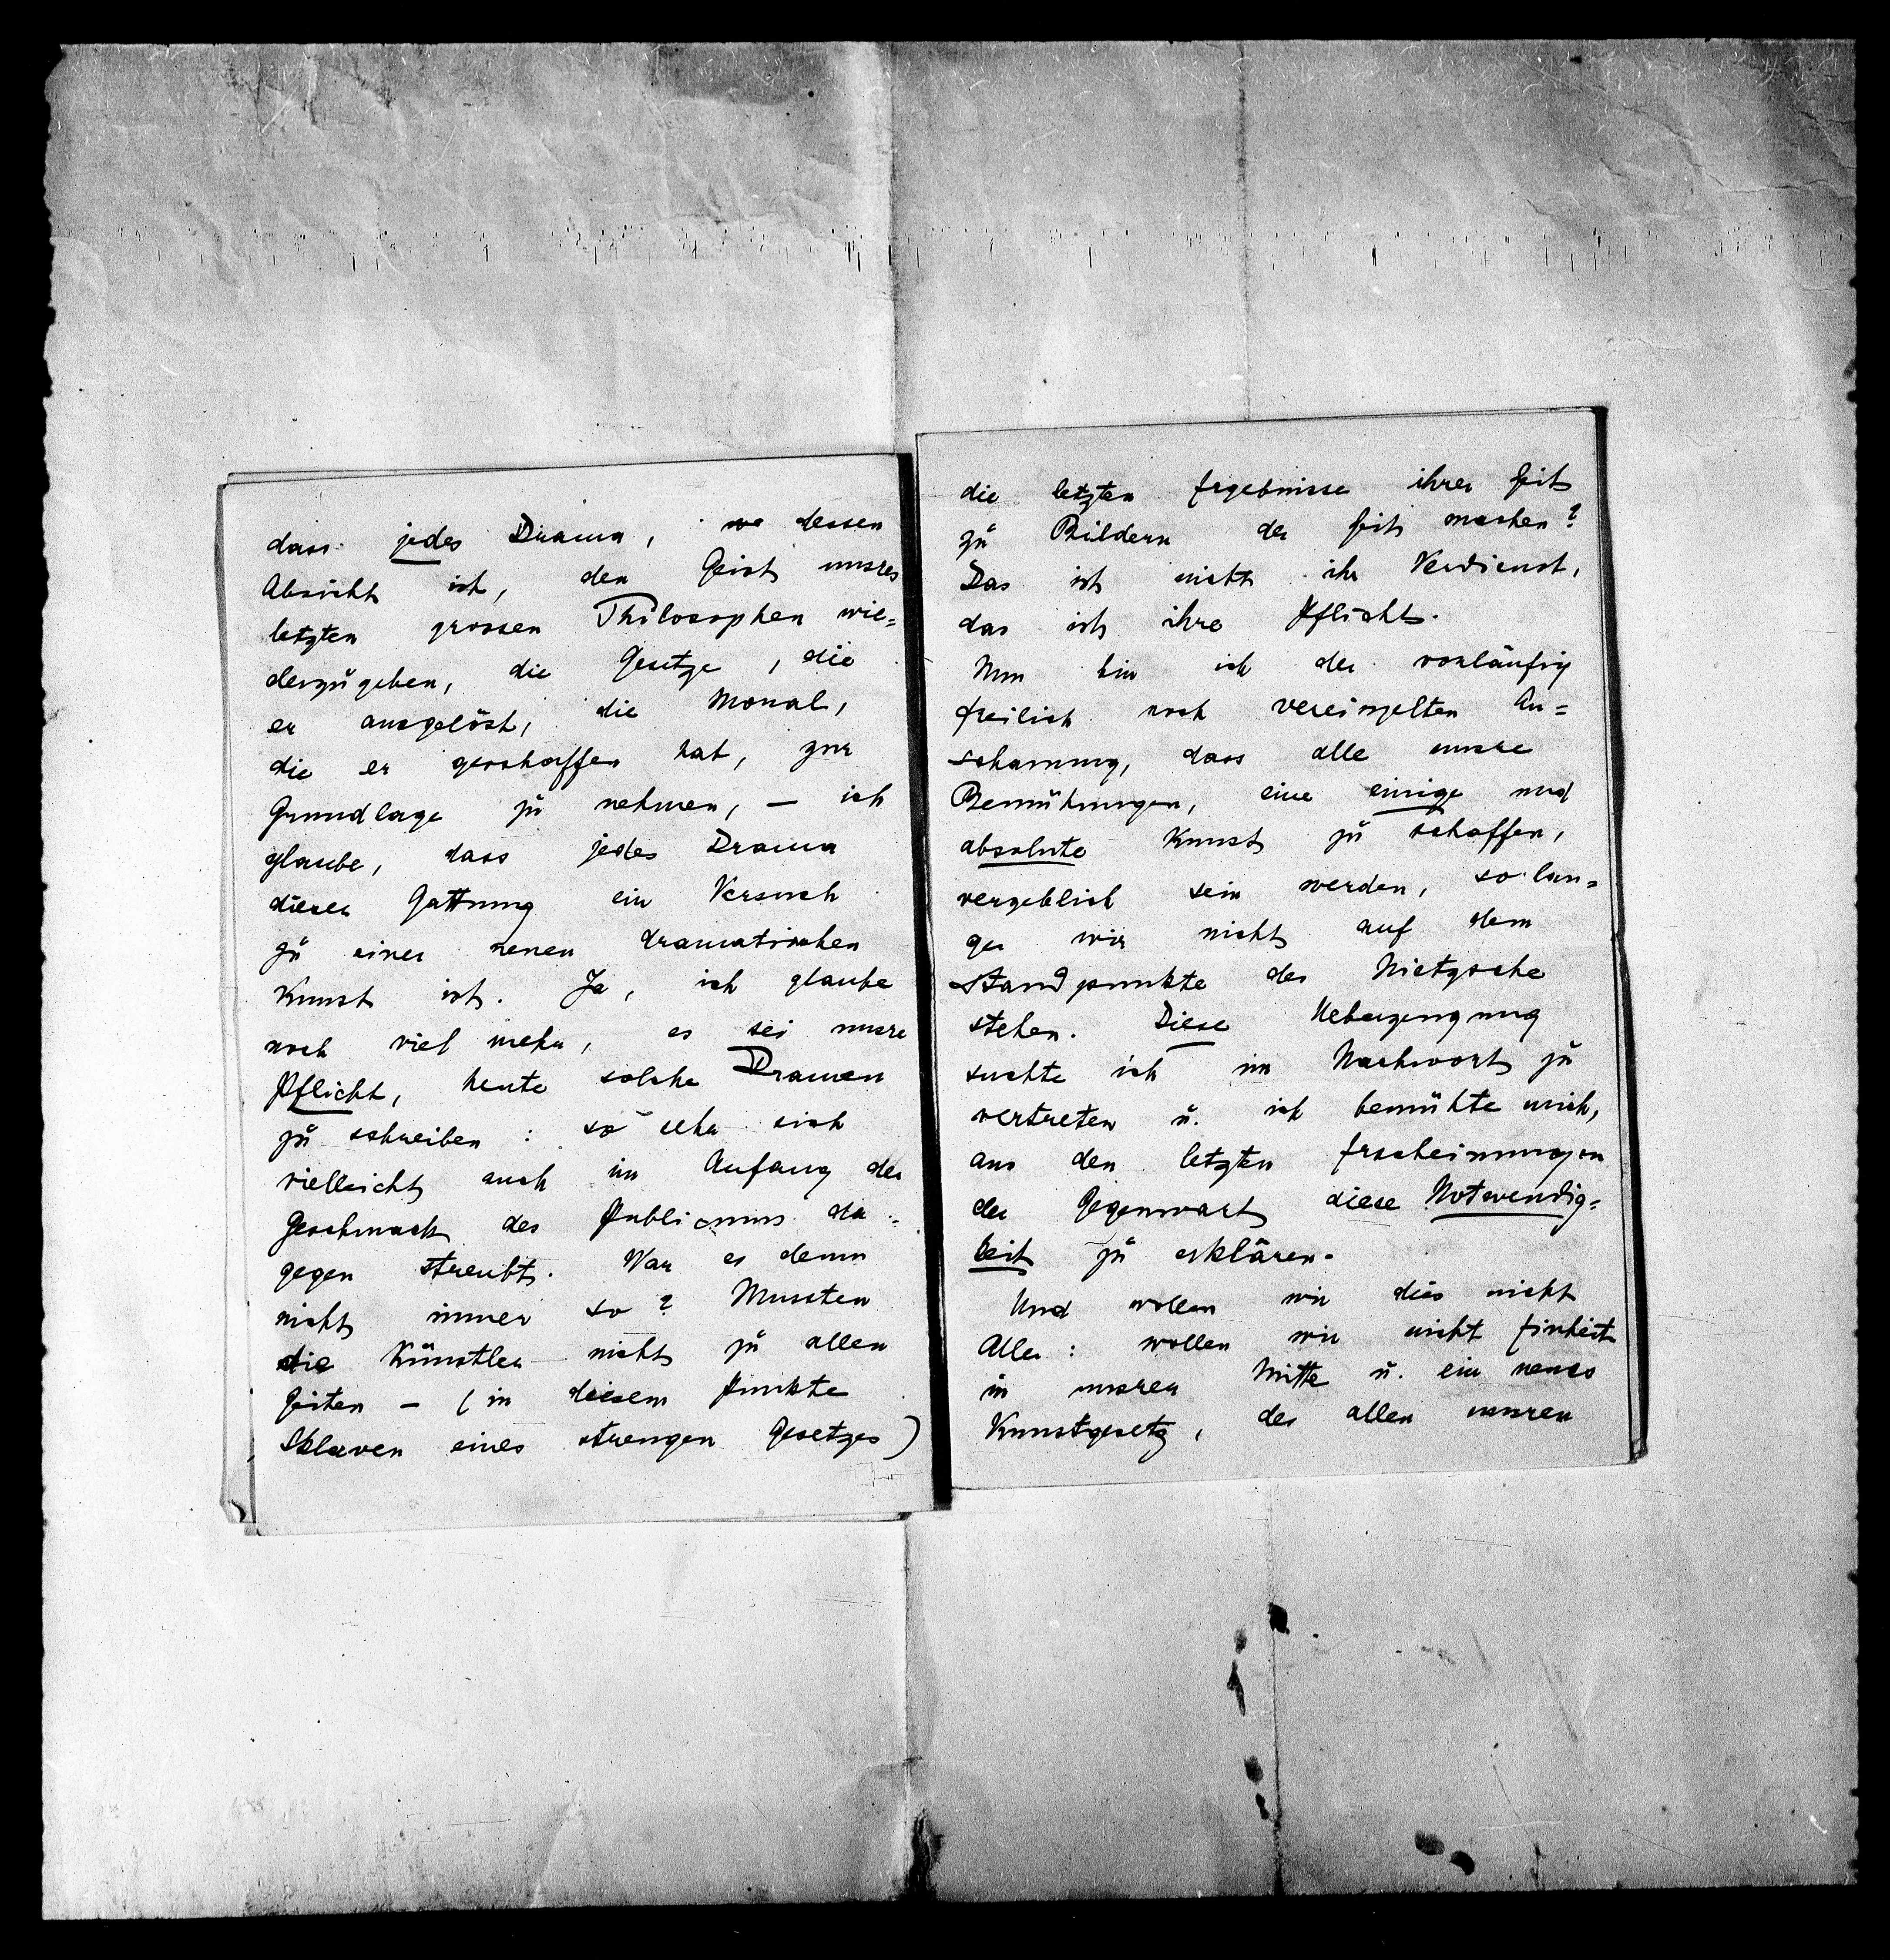 dass jedes Drama, wo dessen
Absicht ist, den Geist unsres
letzten grossen Philosophen wie=
derzugeben, die Gesetze, die
er ausgelöst, die Moral,
die er geschaffen hat, zur
Grundlage zu nehmen, — ich
glaube, dass jedes Drama
dieser Gattung ein Versuch
zu einer neuen dramatischen
Kunst ist. Ja, ich glaube
noch viel mehr, es sei unsre
Pflicht, heute solche Dramen
zu schreiben: so sehr sich
vielleicht auch im Anfang der
Geschmack des Publicums da=
gegen streubt. War es denn
nicht immer so? Mussten
die Künstler nicht zu allen
Zeiten — (in diesem Punkte
Sklaven eines strengen Gesetzes)
die letzten Ergebnisse ihrer Zeit
zu Bildern der Zeit machen?
Das ist nicht ihr Verdienst,
das ist ihre Pflicht.
Nun bin ich der vorläufig
freilich noch vereinzelten An=
schauung, dass alle unsre
Bemühungen, eine einige und
absolute Kunst zu schaffen,
vergeblich sein werden, so lan=
ge wir nicht auf dem
Standpunkte des Nietzsche
stehen. Diese Ueberzeugung
suchte ich im Nachwort zu
vertreten u. ich bemühte mich,
aus den letzten Erscheinungen
der Gegenwart diese Notwendig=
keit zu erklären.
Und wollen wir dies nicht
Alle: wollen wir nicht Einheit
in unsrer Mitte u. ein neues
Kunstgesetz, das allen unsren